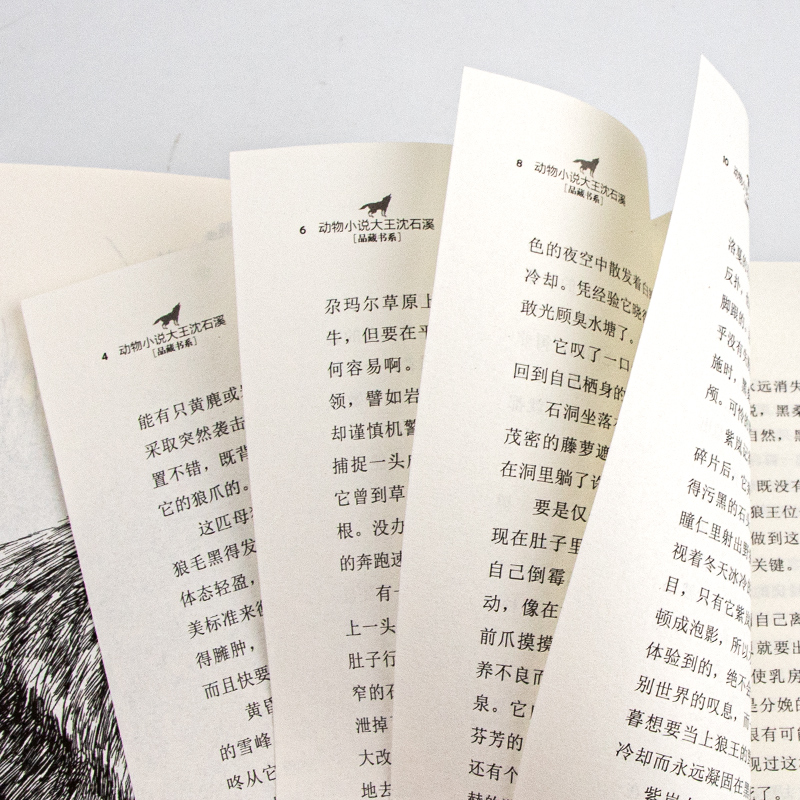 4 动物小说大王沈石溪
[品藏书系]
能有只黄麂或
采取突然袭击
置不错，既背
它的狼爪的。
这匹母
狼毛黑得发
体态轻盈，
美标准来衡
得臃肿，
而且快要
黄昏
的雪峰
咚从它
6 动物小说大王沈石溪
[品藏书系]
尕玛尔草原上
牛，但要在平
何容易啊。
领，譬如岩
却谨慎机警
捕捉一头
它曾到草
根。没办
的奔跑速
有一
上一头
肚子行
窄的石
泄掉
大改
地去
8 动物小说大王沈石溪
[品藏书系]
色的夜空中散发着白
冷却。凭经验它晓得
敢光顾臭水塘了。
它叹了一口
回到自己栖身的
石洞坐落
茂密的藤萝遮
在洞里躺了许
要是仅
现在肚子里
自己倒霉
动，像在
前爪摸摸
养不良而
泉。它
芬芳的
还有个
10 动物小说
洛戛
反扑，
脚跟的
乎没有
施时，
颅。可怜
紫岚
碎片后，它
得污黑的石
瞳仁里射出野
视着冬天冰冷
目，只有它紫岚
顿成泡影，所以
体验到的，绝不
别世界的叹息，而
暮想要当上狼王的
冷却而永远凝固在黑
紫岚
永远消失
说，黑桑
自然，黑
既没有
狼王位
做到这
关键。
自己离
就要出
使乳房
是分娩的
很有可能
见过这
死了。